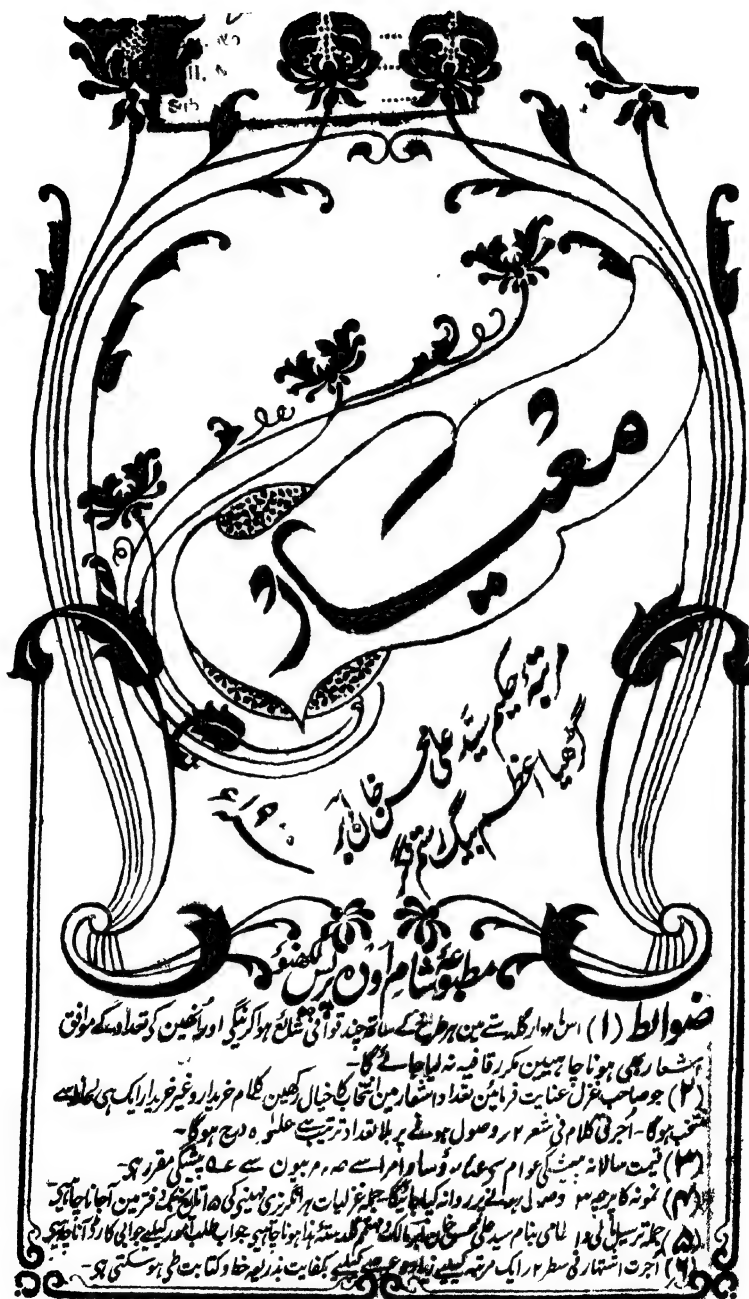 معیار
مرتبۂ حکیم سید علی محسن خان ابر
گڑھیا اعظم بیگ
۱۹۰
مطبوعۂ شام اودھ پریس لکھنؤ
ضوابط (۱) اس ماہوار گلدستے مین ہر طرح کے ساتھ چند قوافی شائع ہوا کرینگی اور اُنھین کی تعداد کے موافق
اشعار بھی ہونا چاہیین مکرر قافیہ نہ لیا جائے گا۔
(۲) جو صاحب غزل عنایت فرمائین تعداد اشعار مین انتخاب کا خیال رکھین کلام خریدار و غیر خریدار ایک ہی لحاظ سے
منتخب ہوگا۔ اُجرتی کلام فی شعر ۲ر وصول ہونے پر بلا تعداد ترتیب سے علٰحدہ درج ہوگا۔
(۳) قیمت سالانہ پیشگی عوام سی رؤسا و امرا سے مربیون سے پیشگی مقرر ہی۔
(۴) نمونہ کا پرچہ ۳ر وصول ہونے پر روانہ کیا جائیگا جملہ غزلیات ہر انگریزی مہینے کی ۱۵ تاریخ تک دفتر مین آجانا چاہیی
(۵) جملہ ترسیل بنام سید علی محسن خان ابر مالک و مہتمم گلدستہ ہذا ہونا چاہیی جواب طلب امور کیلیے جوابی کارڈ آنا چاہیی
(۶) اُجرت اشتہار فی سطر ۲ر ایک مرتبہ کیلیے زیادہ عرصے کیلیے بکفایت بذریعہ خط و کتابت طی ہو سکتی ہی۔